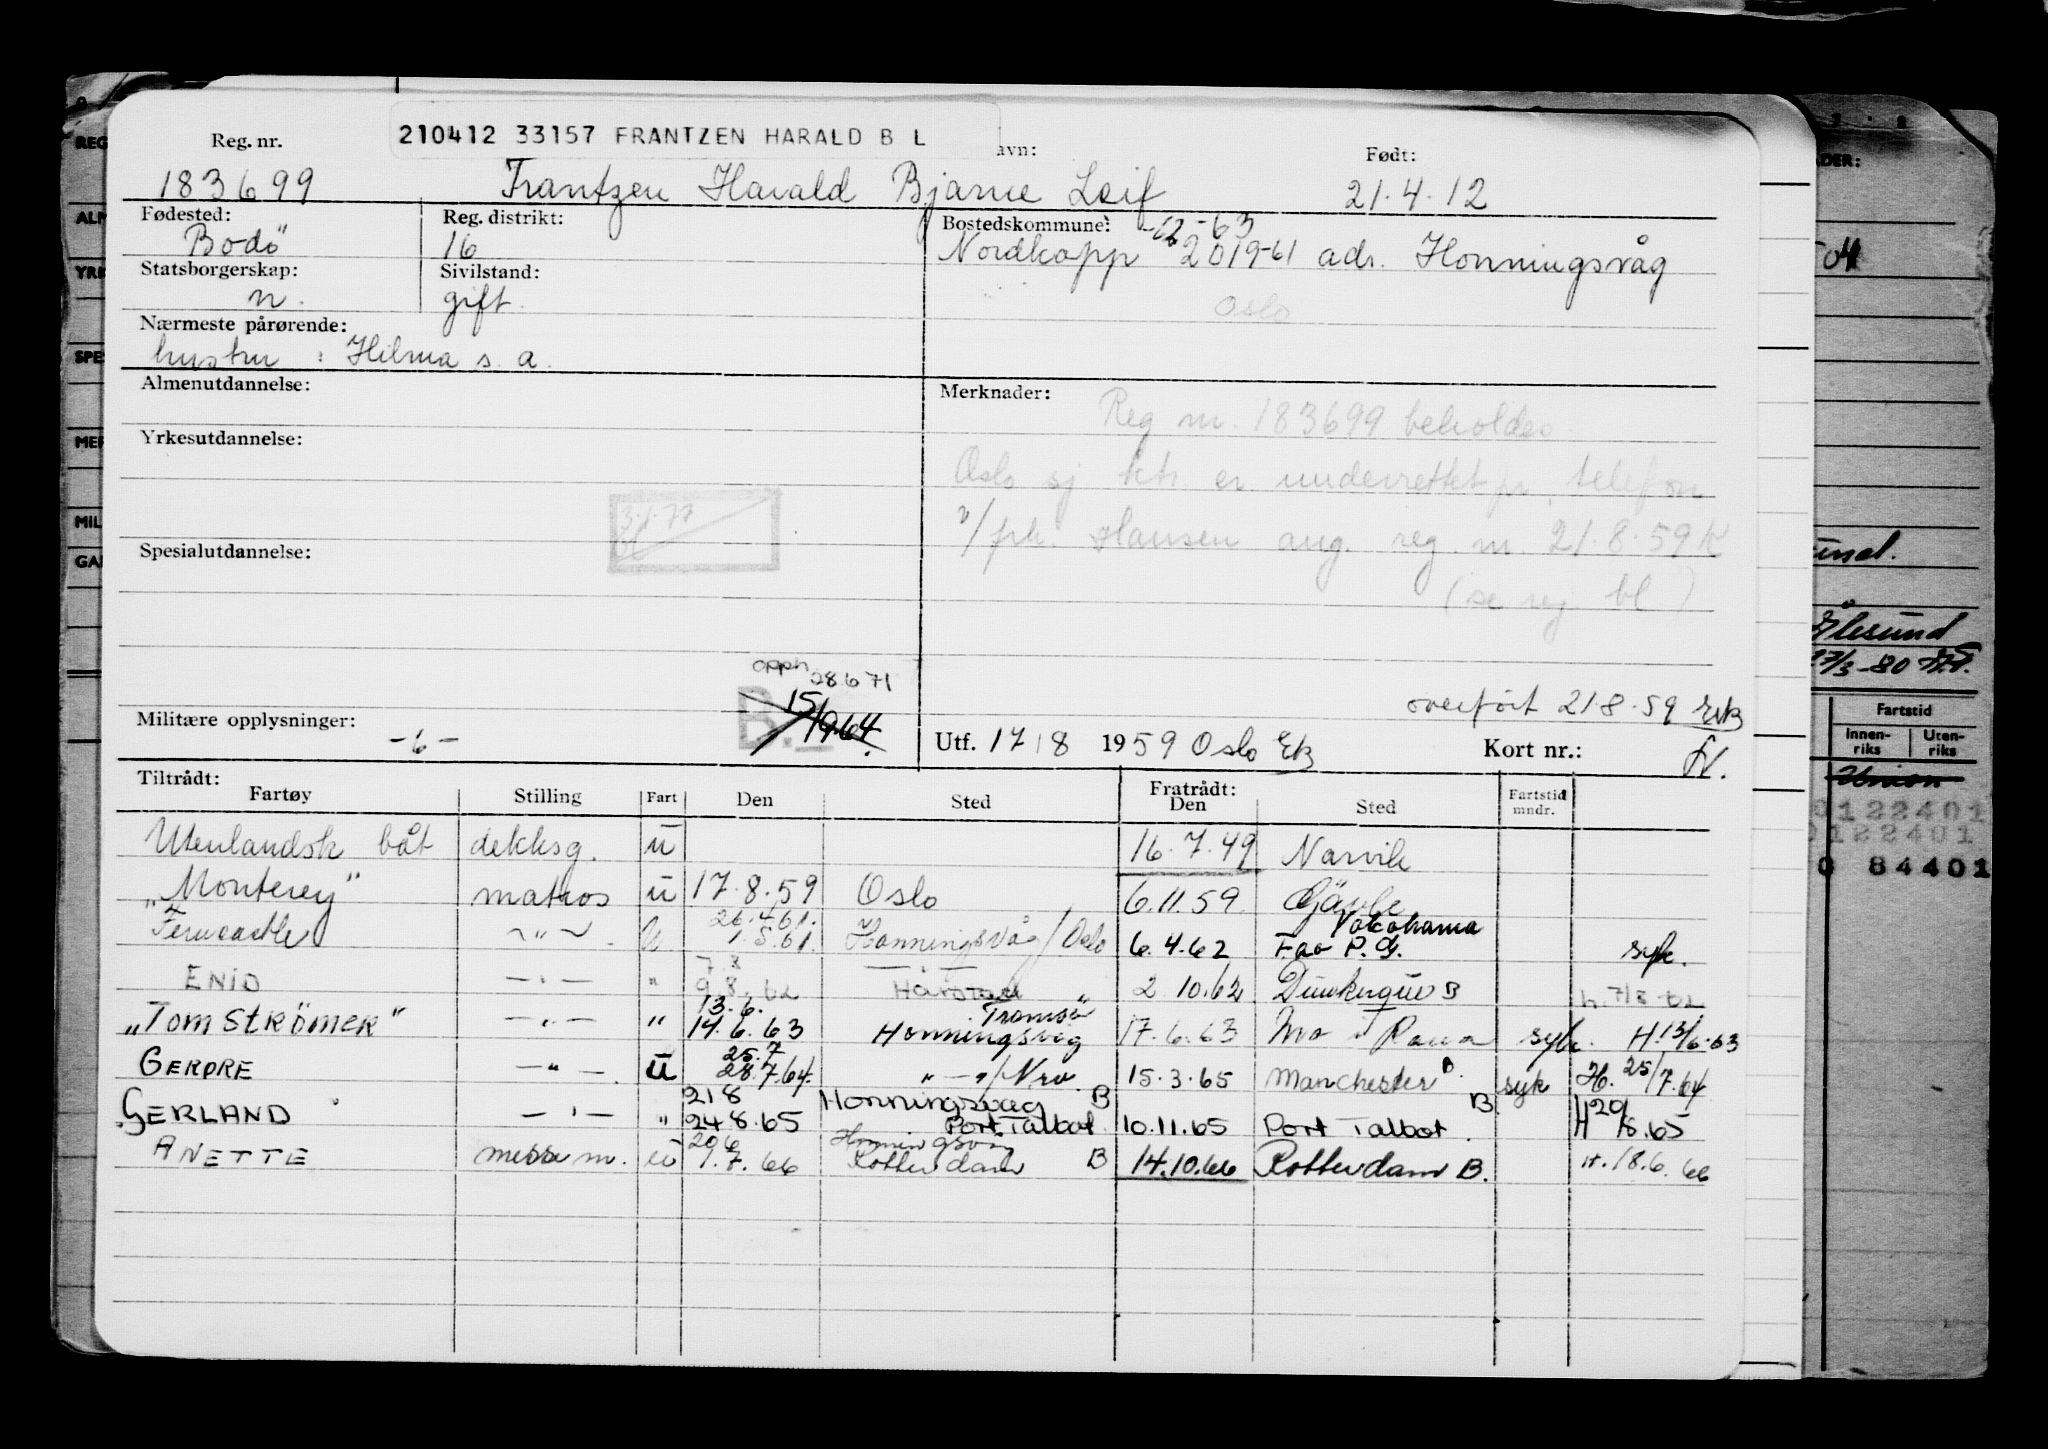 210412 33157 FRANTZEN HARALD B L
Reg. nr.
avn:
Født:
183699
Frantzen Harald Bjarne Leif
21.4.12
Fødested:
Reg. distrikt:
Bostedskommune:
-12-63
Bodö
16
Nordkapp 2019-61 adr. Honningsvåg
Statsborgerskap:
Sivilstand:
n.
gift.
Oslo
Nærmeste pårørende:
hustru : Hilma s. a.
Almenutdannelse:
Merknader:
Reg nr. 183699 beholdes
Yrkesutdannelse:
Oslo sj ktr. er underrettet pr. telefon
3.1.77
v/frk. Hansen ang. reg. nr. 21.8.59 K
Spesialutdannelse:
(se reg. bl)
opph
28671
15/9.64.
B.
overført 21.8.59
Militære opplysninger:
-6-
Utf. 17/8 1959 Oslo
Kort nr.:
Tiltrådt:
Fartøy
Stilling
Fart
Den
Sted
Fratrådt:
Den
Sted
Fartstid
mndr.
Utenlandsk båt dekksg. u 16.7.49 Narvik
"Monterey" matros u 17.8.59 Oslo 6.11.59. Gävle
26.4.61.
Yokohama
Ferncastle -"- U 1.5.61. Honningsvåg/Oslo 6.4.62 Fao P.G. syk.
7.8
ENID -"- " 9.8.62 Harstad 2.10.62 Dunkerque B h. 7/8 62
13.6.
Tromsø "
"TOM STRÖMER" -"- " 14.6.63 Honningsvåg 17.6.63 Mo i Rana syk. H. 13/6.63
25.7
GERDRE -"- u 28.7.64. "-"/Nrv. 15.3.65 Manchester B. syk H. 25/7.64
218
Honningsvåg B
GERLAND -"- " 248.65 Port Talbot 10.11.65 Port Talbot B. H 20/8.65
206
Honningsvåg
ANETTE messe m. u 1.7.66 Rotterdam B 14.10.66 Rotterdam B. H. 18.6.66
REG
YRK
SPE
MER
MIL
ADER:
04
und.
Ålesund
17/3-80
Fartstid
Innen-
riks
Uten-
riks
Union
0122401
0122401
0 84401